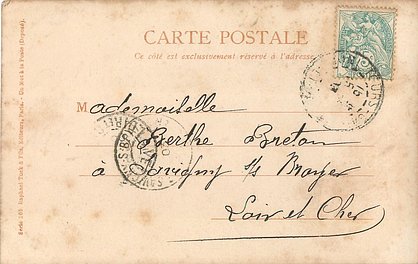 CARTE POSTALE
Ce côté est exclusivement réservé à l'adresse
Mademoiselle
Berthe Breton
à Souvigny s/s Broyer
Loir et Cher
Série 105 Raphael Tuck & Fils, Editeurs, Paris. - Un Mot à la Poste (Déposé).